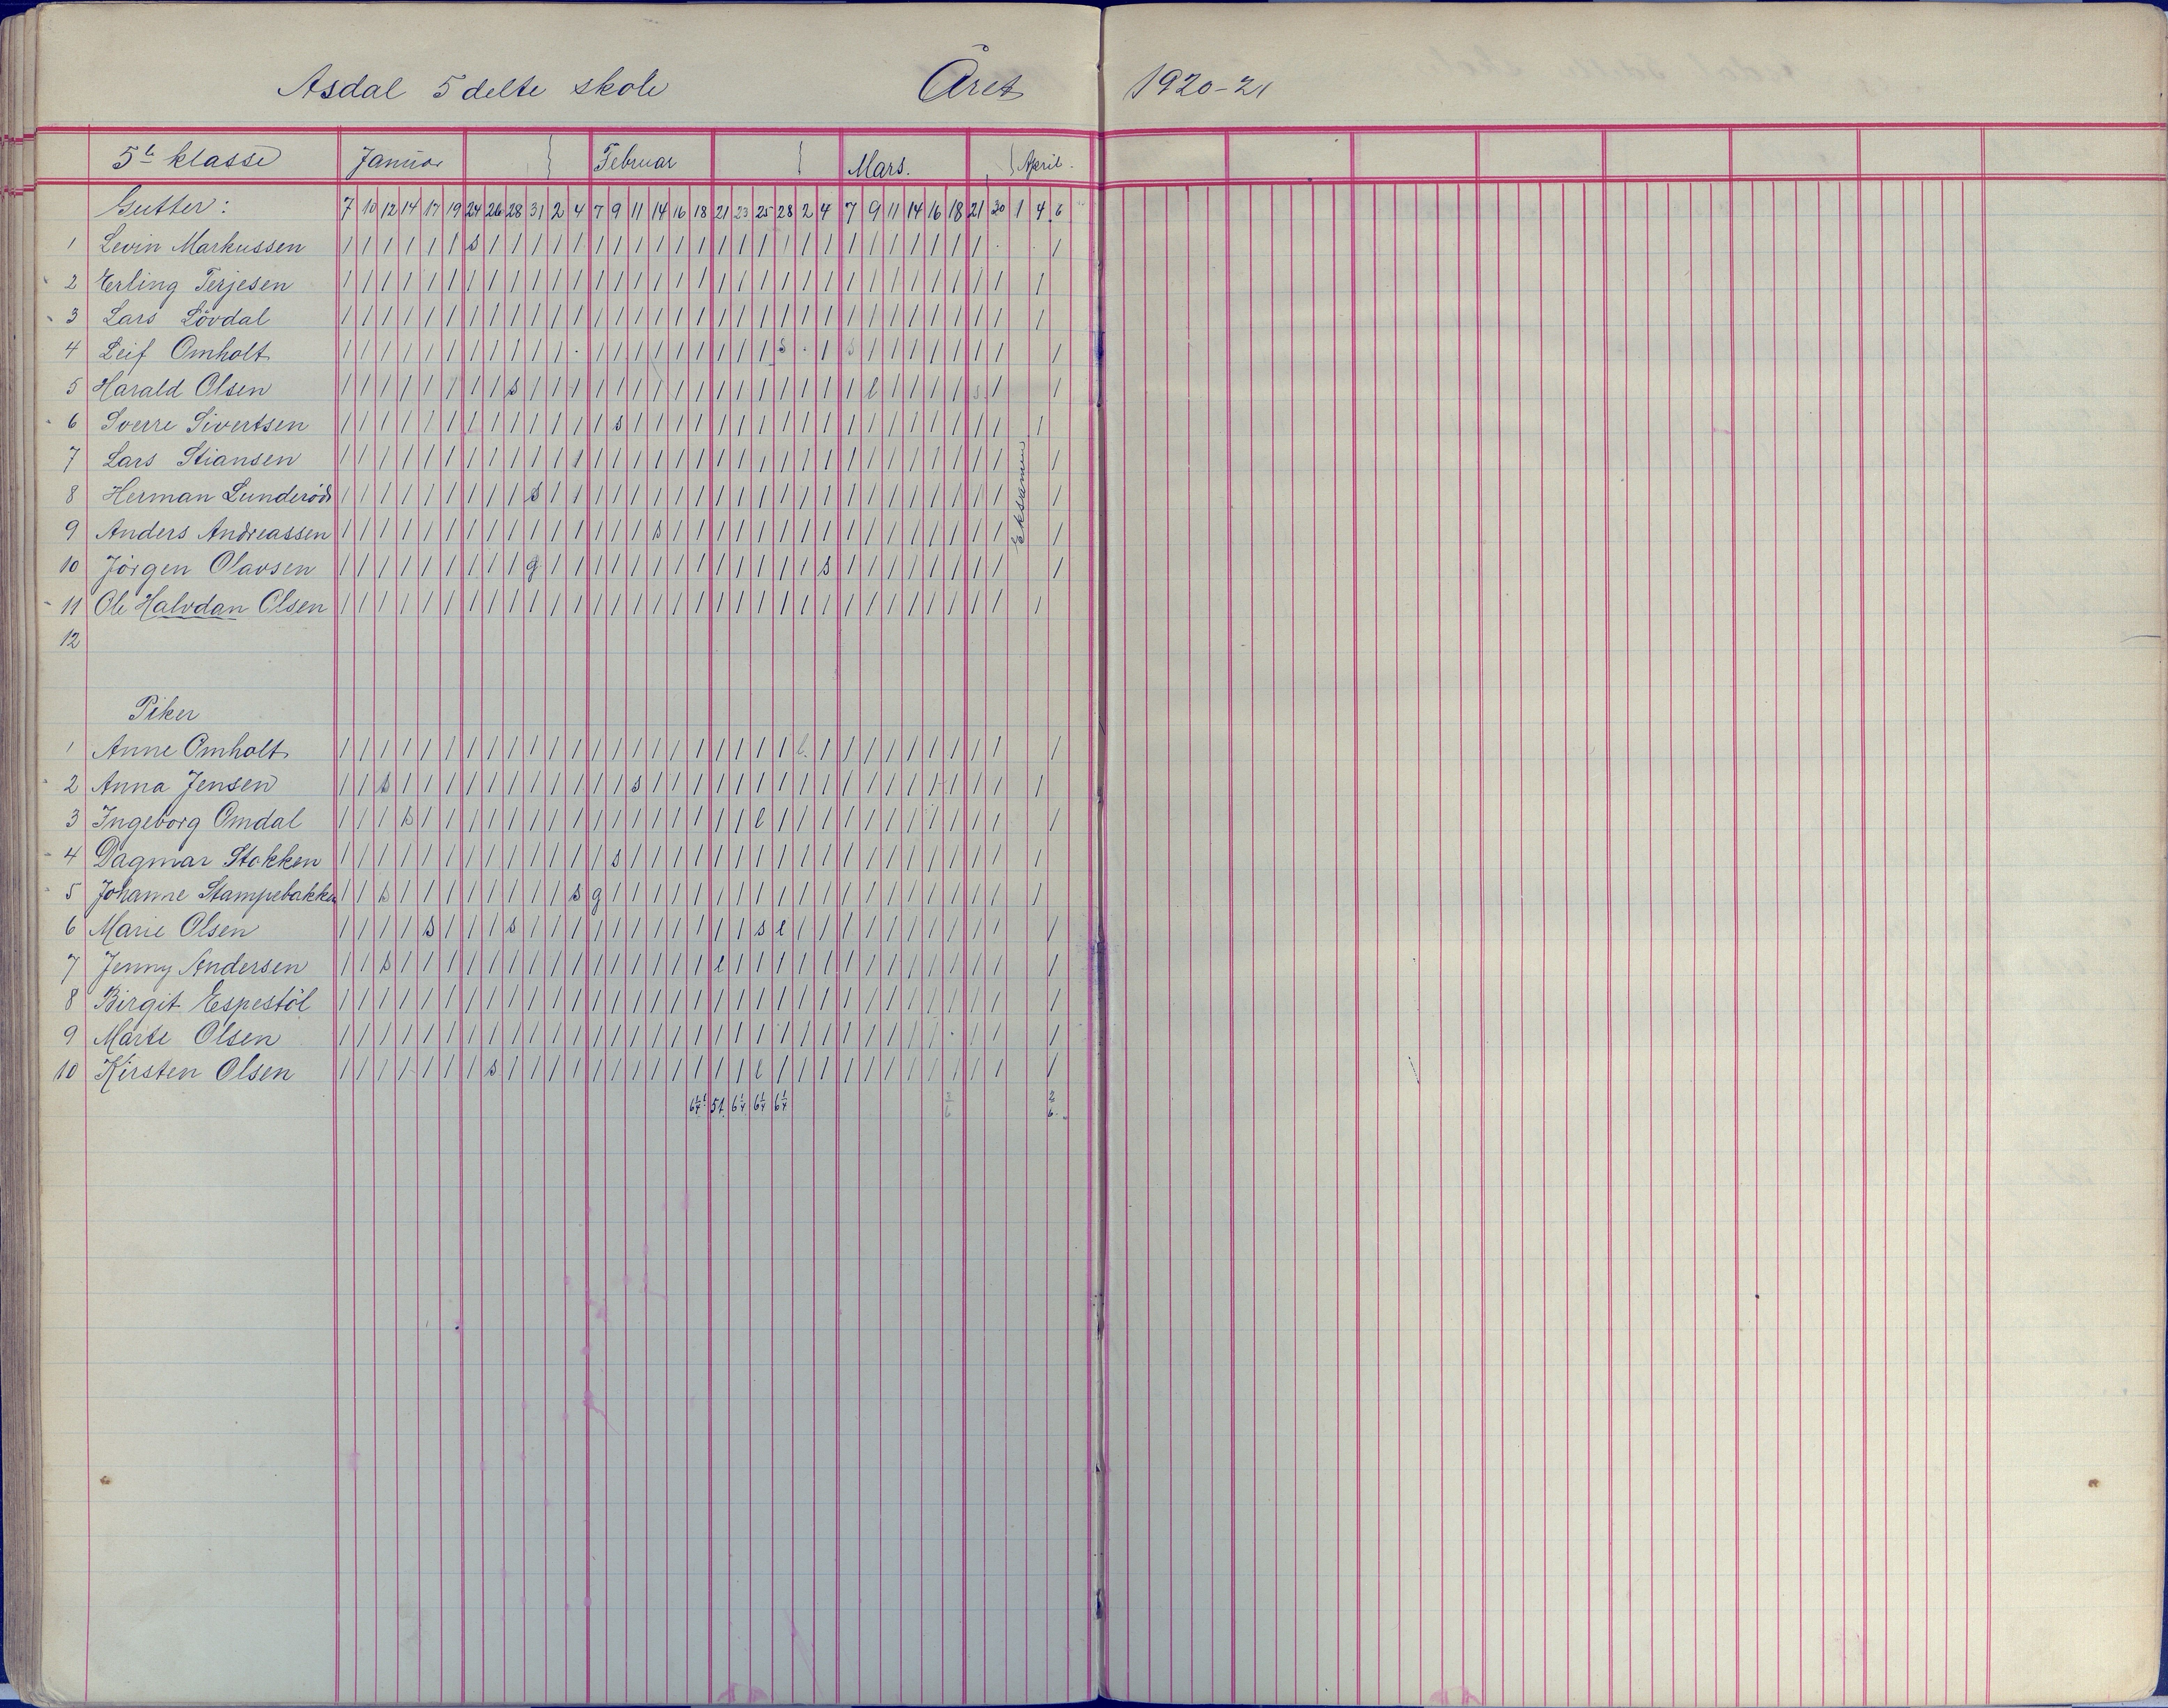 Asdal 5 delte skole Året 1920-21
5te klasse Januar Februar Mars. April.
Gutter: 7 10 12 14 17 19 24 26 28 31 2 4 7 9 11 14 16 18 21 23 25 28 2 4 7 9 11 14 16 18 21 30 1 4 6
1 Levin Markussen / / / / / / s / / / / / / / / / / / / / / / / / / / / / / / / . . /
2 Erling Terjesen / / / / / / / / / / / / / / / / / / / / / / / / / / / / / / / / /
3 Lars Lövdal / / / / / / / / / / / / / / / / / / / / / / / / / / / / / / / / /
4 Leif Omholt / / / / / / / / / / / . / / / / / / / / / s . / s / / / / / / / /
5 Harald Olsen / / / / / / / / s / / / / / / / / / / / / / / / / l / / / / s / /
6 Sverre Sivertsen / / / / / / / / / / / / / s / / / / / / / / / / / / / / / / / / /
7 Lars Stiansen / / / / / / / / / / / / / / / / / / / / / / / / / / / / / / / / /
8 Herman Lunderöd / / / / / / / / / s / / / / / / / / / / / / / / / / / / / / / / /
9 Anders Andreassen / / / / / / / / / / / / / / / s / / / / / / / / / / / / / / / / /
10 Jörgen Olavsen / / / / / / / / / g / / / / / / / / / / / / / s / / / / / / / / /
11 Ole Halvdan Olsen / / / / / / / / / / / / / / / / / / / / / / / / / / / / / / / / /
Eksamen
12
Piker
1 Anne Omholt / / / / / / / / / / / / / / / / / / / / / / l / / / / / / / / / /
2 Anna Jensen / / s / / / / / / / / / / / s / / / / / / / / / / / / / / / / / /
3 Ingeborg Omdal / / / s / / / / / / / / / / / / / / / / l / / / / / / / / / / / /
4 Dagmar Stokken / / / / / / / / / / / / / s / / / / / / / / / / / / / / / / / / /
5 Johanne Stampebakken / / s / / / / / / / / s g / / / / / / / / / / / / / / / / / / / /
6 Marie Olsen / / / / s / / / s / / / / / / / / / / / s l / / / / / / / / / / /
7 Jenny Andersen / / s / / / / / / / / / / / / / / / l / / / / / / / / / / / / / /
8 Birgit Espestöl / / / / / / / / / / / / / / / / / / / / / / / / / / / / / / / / /
9 Marte Olsen / / / / / / / / / / / / / / / / / / / / / / / / / / / / / . / / /
10 Kirsten Olsen / / / / / / / s / / / / / / / / / / / / l / / / / / / / / / / / /
6¼ 5t. 6¼ 6¼ 6¼ 2/6